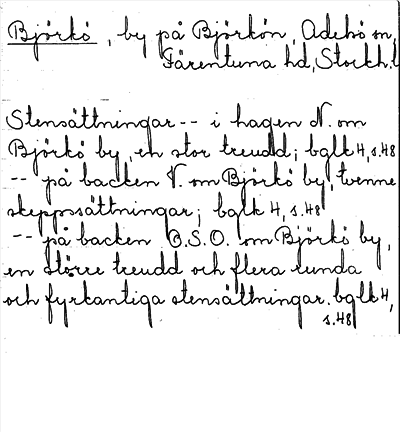 Björkö, by på Björkön, Adelsö sn,
Färentuna hd, Stockh. l
Stensättningar -- i hagen N. om
Björkö by, en stor treudd; bglk 4, s.48
-- på backen V. om Björkö by, tvenne
skeppssättningar; bglk 4, s.48
-- på backen O.S.O. om Björkö by,
en större treudd och flera runda
och fyrkantiga stensättningar. bglk 4,
s.48